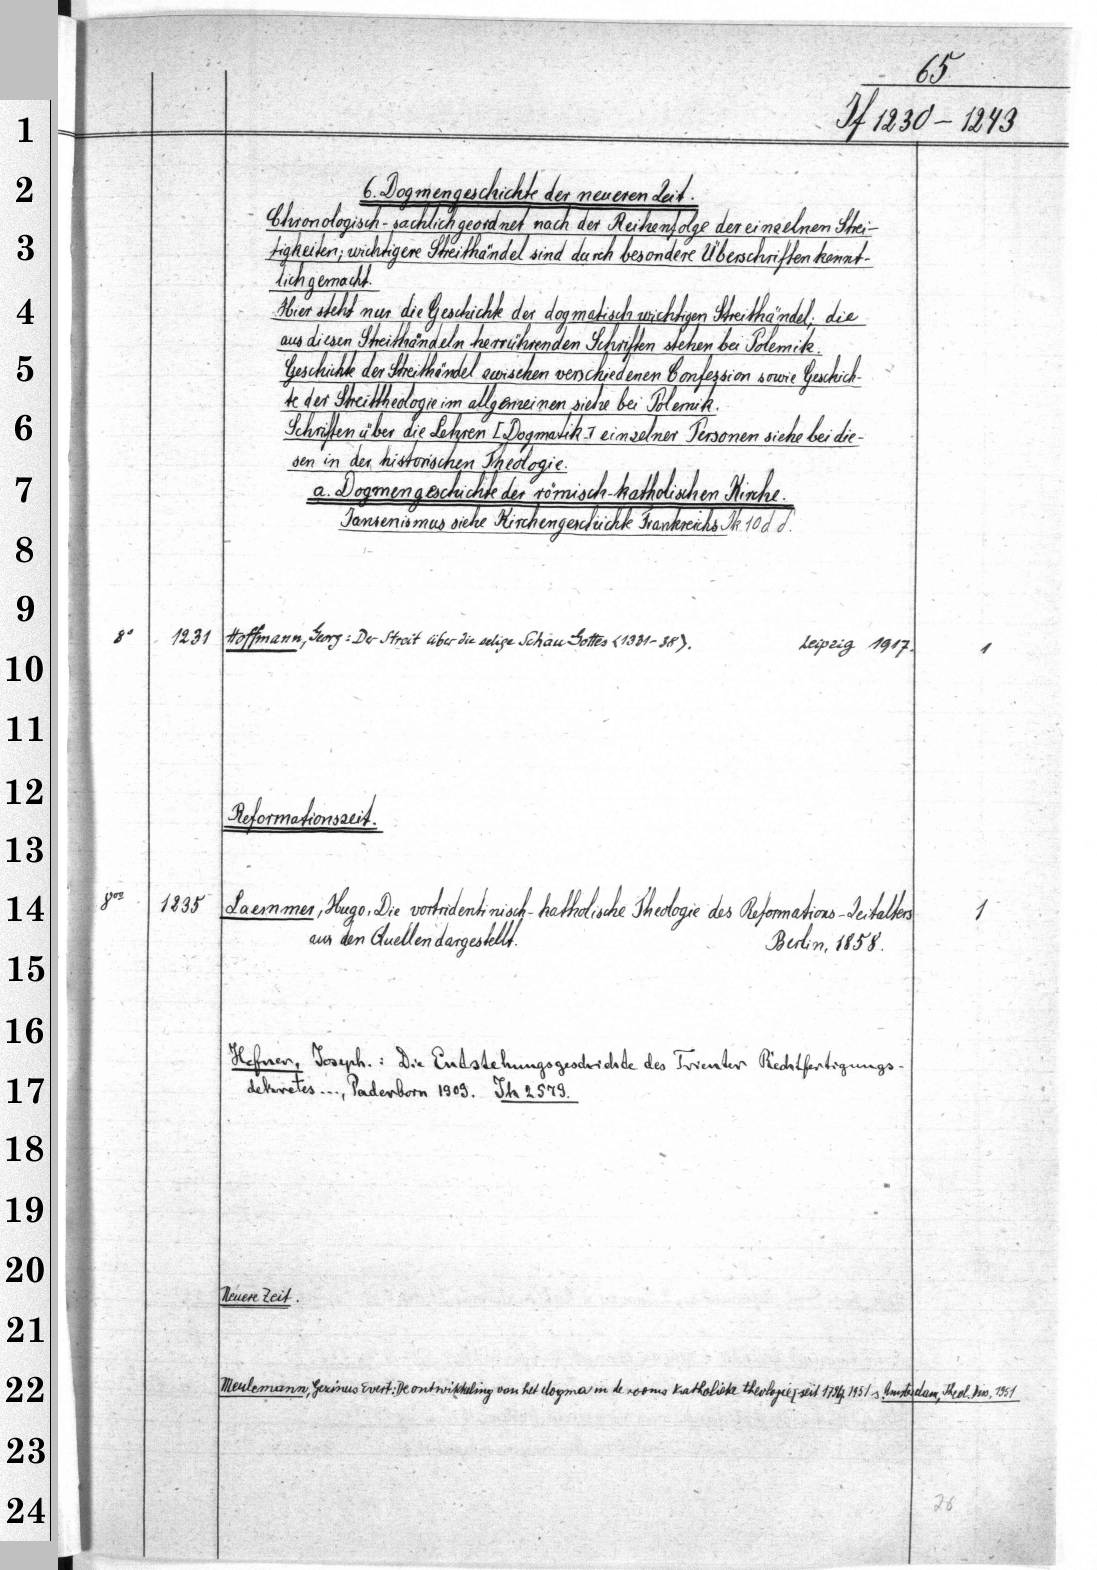 65
If 1230 - 1243
1
2
3
4
5
6
7
8
9
10
11
12
13
14
15
16
17
18
19
20
21
22
23
24
6. Dogmengeschichte der neueren Zeit.
Chronologisch-sachlich geordnet nach der Reihenfolge der einzelnen Strei-
tigkeiten; wichtigere Streithändel sind durch besondere Überschriften kennt-
lich gemacht.
Hier steht nur die Geschichte der dogmatisch wichtigen Streithändel; die
aus diesen Streithändeln herrührenden Schriften stehen bei Polemik.
Geschichte der Streithändel zwischen verschiedenen Confession sowie Geschich-
te der Streittheologie im allgemeinen siehe bei Polemik.
Schriften über die Lehren [Dogmatik] einzelner Personen siehe bei die-
sen in der historischen Theologie.
a. Dogmengeschichte der römisch-katholischen Kirche.
Jansenismus siehe Kirchengeschichte Frankreichs Ik 10 d d.
8° 1231 Hoffmann, Georg: Der Streit über die selige Schau Gottes <1331-38>. Leipzig 1917. 1
Reformationszeit.
8vo 1235 Laemmer, Hugo, Die vortridentinisch-katholische Theologie des Reformations-Zeitalters 1
aus den Quellen dargestellt. Berlin, 1858.
Hefner, Joseph.: Die Entstehungsgeschichte des Trienter Rechtfertigungs-
dekretes ..., Paderborn 1909. Ih 2579.
Neuere Zeit.
Meulemann, Gezinus Evert: De ontwikkeling van het dogma in de rooms katholieke theologie, seit 1951 s. Amsterdam, Theol. Diss. 1951
26